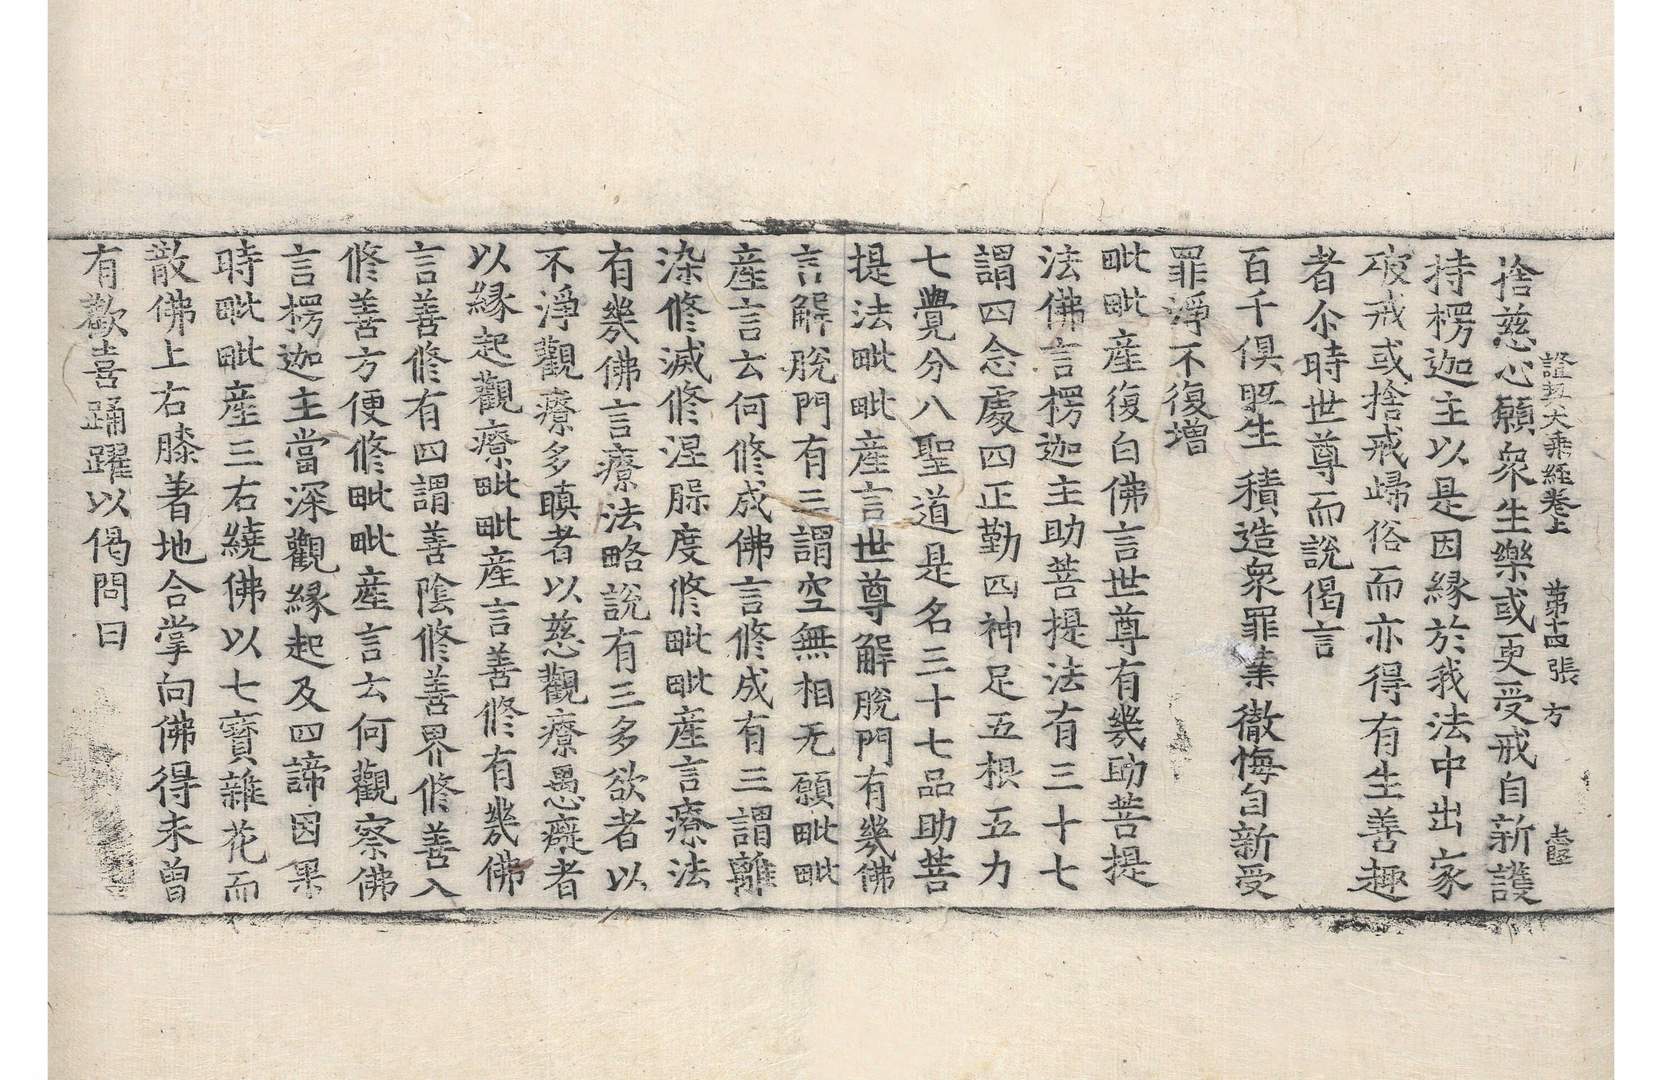 證契大乘經卷上 第十四張 方
捨慈心願衆生樂或更受戒自新護
持楞迦主以是因緣於我法中出家
破戒或捨戒歸俗而亦得有生善趣
者尒時世尊而說偈言
百千俱胝生 積造衆罪業 徹悔自新受
罪淨不復增
毗毗産復白佛言世尊有幾助菩提
法佛言楞迦主助菩提法有三十七
謂四念處四正勤四神足五根五力
七覺分八聖道是名三十七品助菩
提法毗毗産言世尊解脫門有幾佛
言解脫門有三謂空無相无願毗毗
産言云何修成佛言修成有三謂離
染修滅修涅槃度修毗毗産言療法
有幾佛言療法略說有三多欲者以
不淨觀療多瞋者以慈觀療愚癡者
以緣起觀療毗毗産言善修有幾佛
言善修有四謂善陰修善界修善入
修善方便修毗毗産言云何觀察佛
言楞迦主當深觀緣起及四諦因果
時毗毗産三右繞佛以七寶雜花而
散佛上右膝著地合掌向佛得未曾
有歡喜踊躍以偈問曰